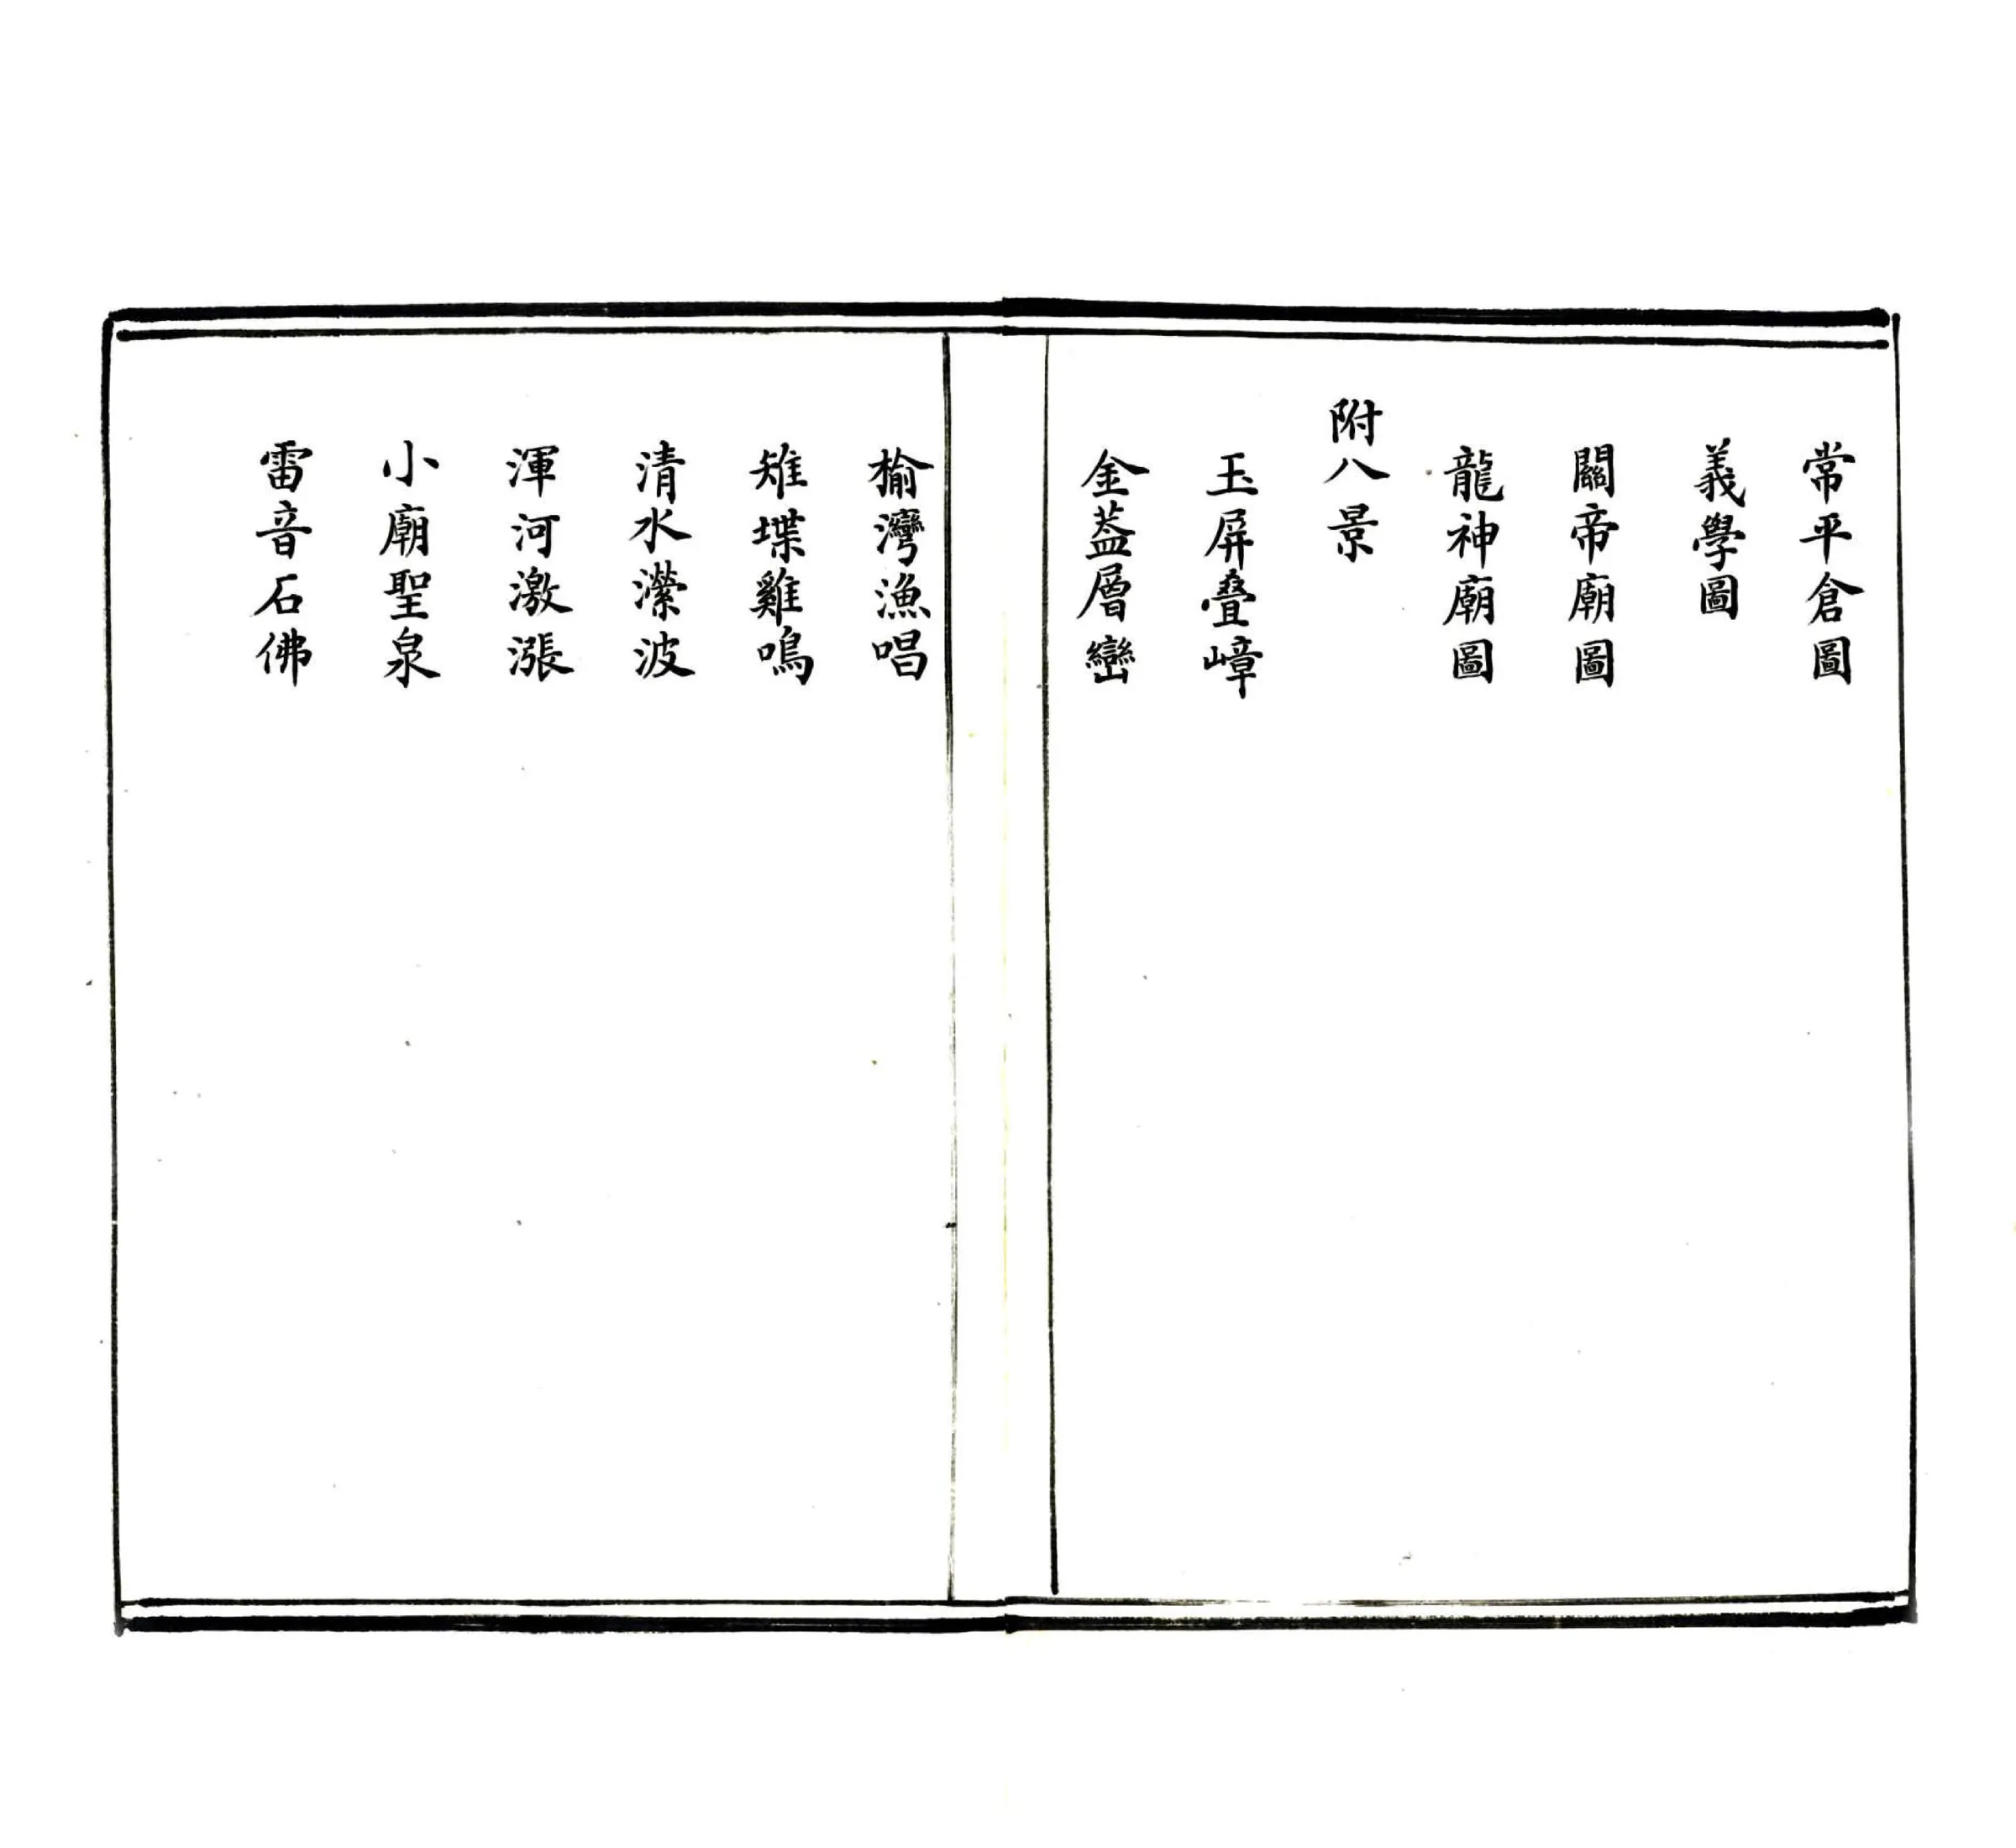 常平倉圖
義學圖
關帝廟圖
龍神廟圖
附八景
玉屏疊嶂
金葢層巒
榆灣漁唱
雉堞雞鳴
清水瀠波
渾河激漲
小廟聖泉
雷音石佛